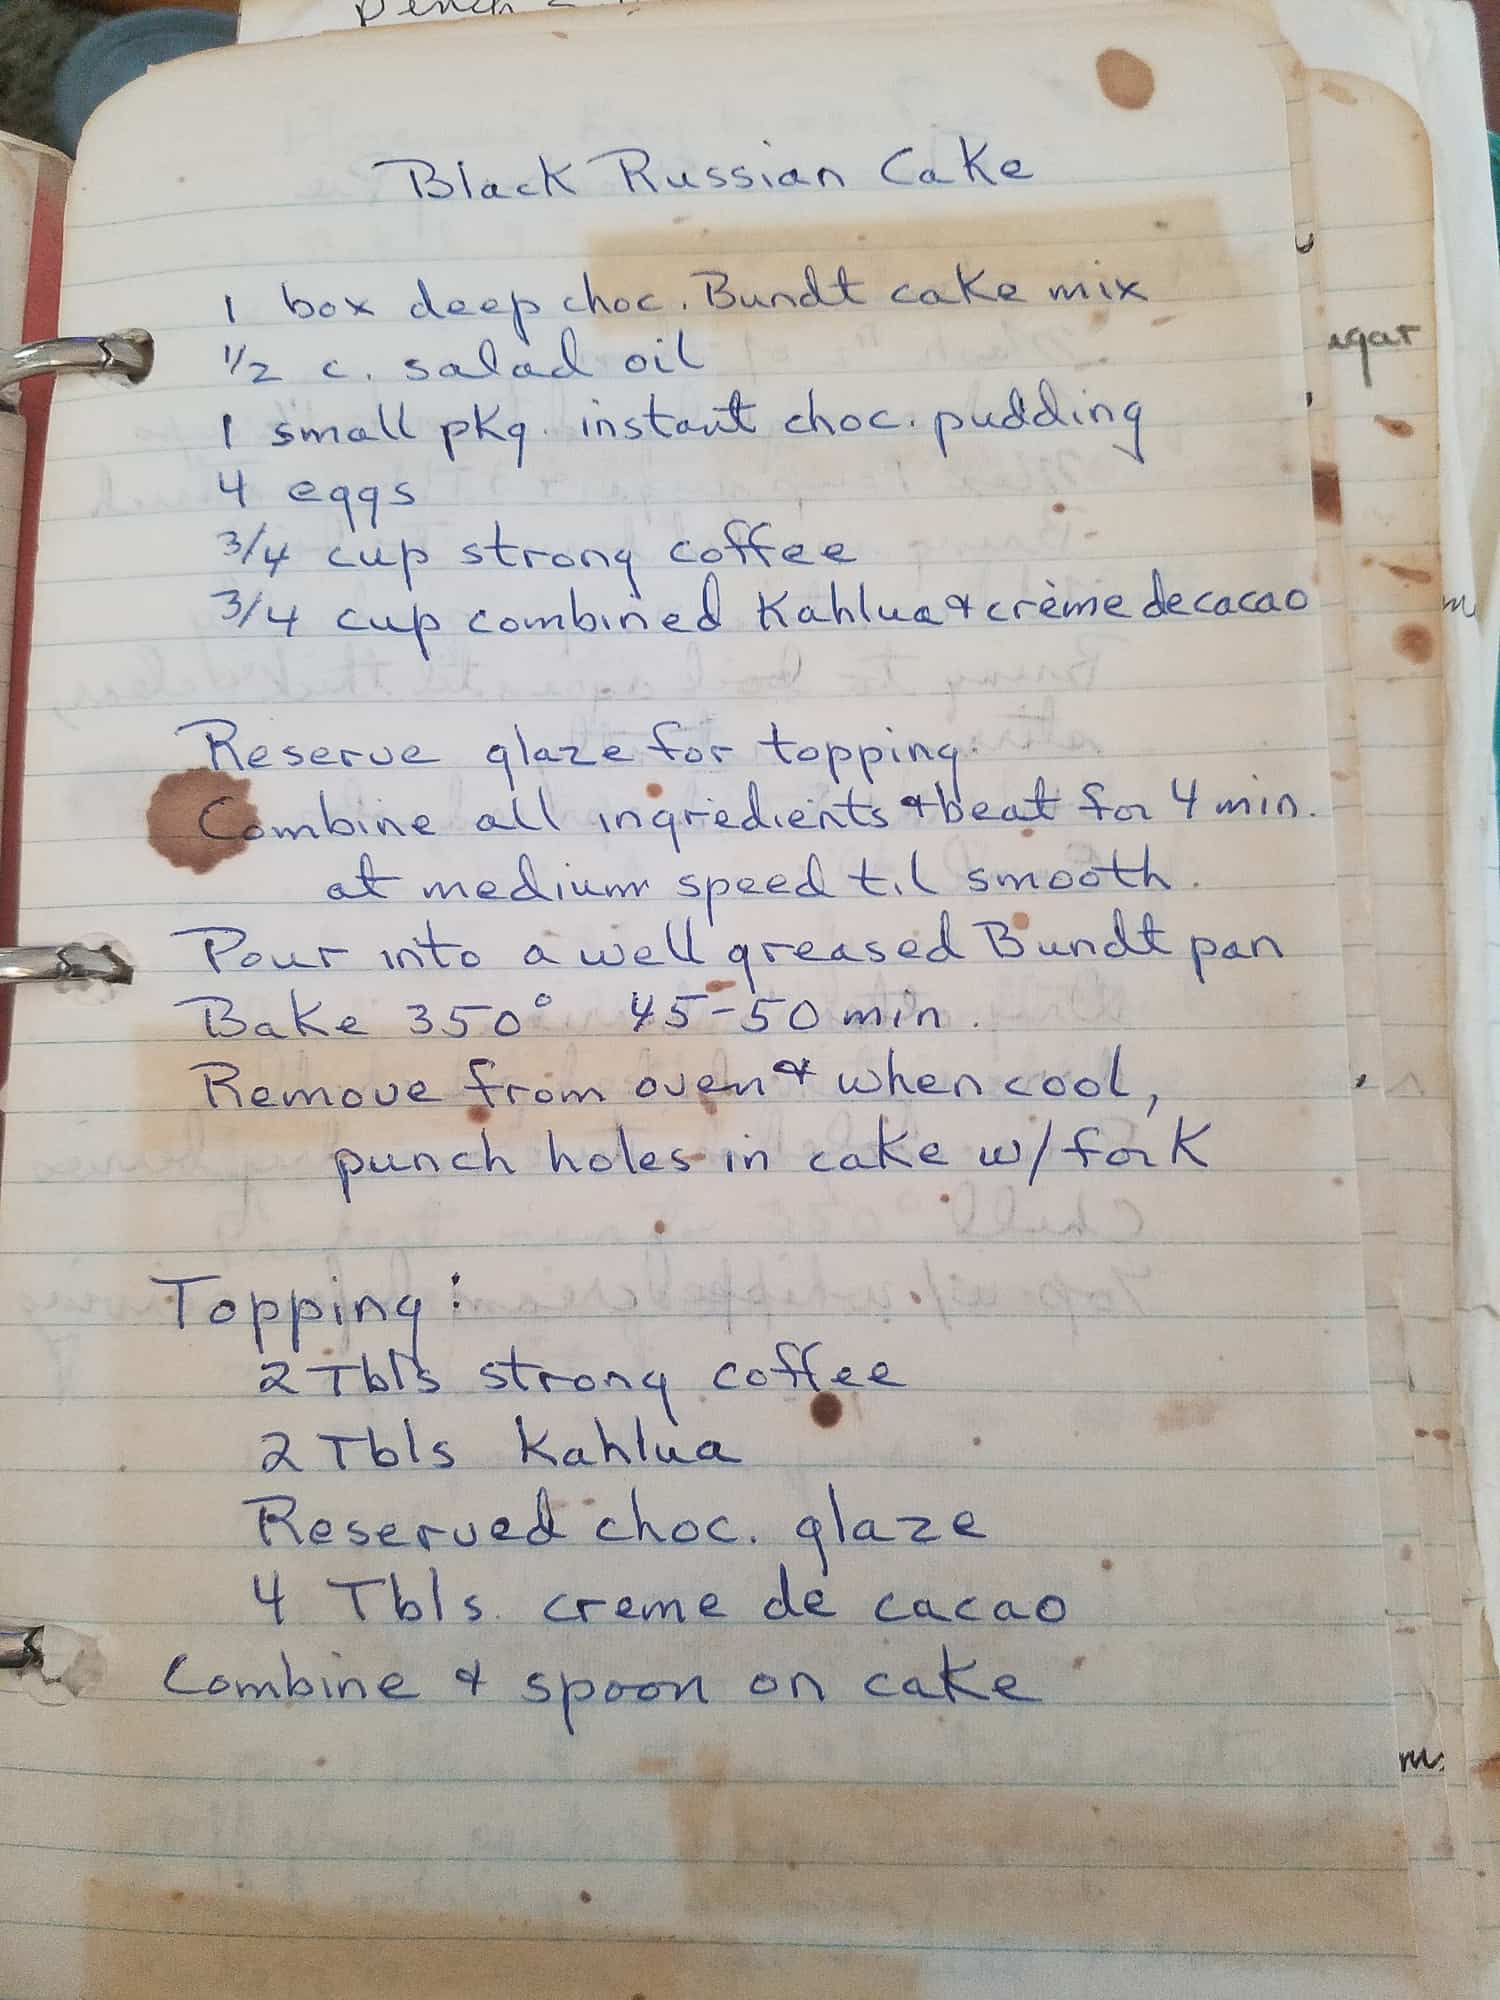 Black Russian Cake
1 box deep choc. Bundt cake mix
1/2 c. salad oil
1 small pkg. instant choc. pudding
4 eggs
3/4 cup strong coffee
3/4 cup combined Kahlua & crème de cacao
Reserve glaze for topping.
Combine all ingredients & beat for 4 min.
at medium speed til smooth.
Pour into a well greased Bundt pan
Bake 350° 45-50 min.
Remove from oven & when cool,
punch holes in cake w/ fork
Topping:
2 Tbls strong coffee
2 Tbls Kahlua
Reserved choc. glaze
4 Tbls. creme de cacao
Combine & spoon on cake